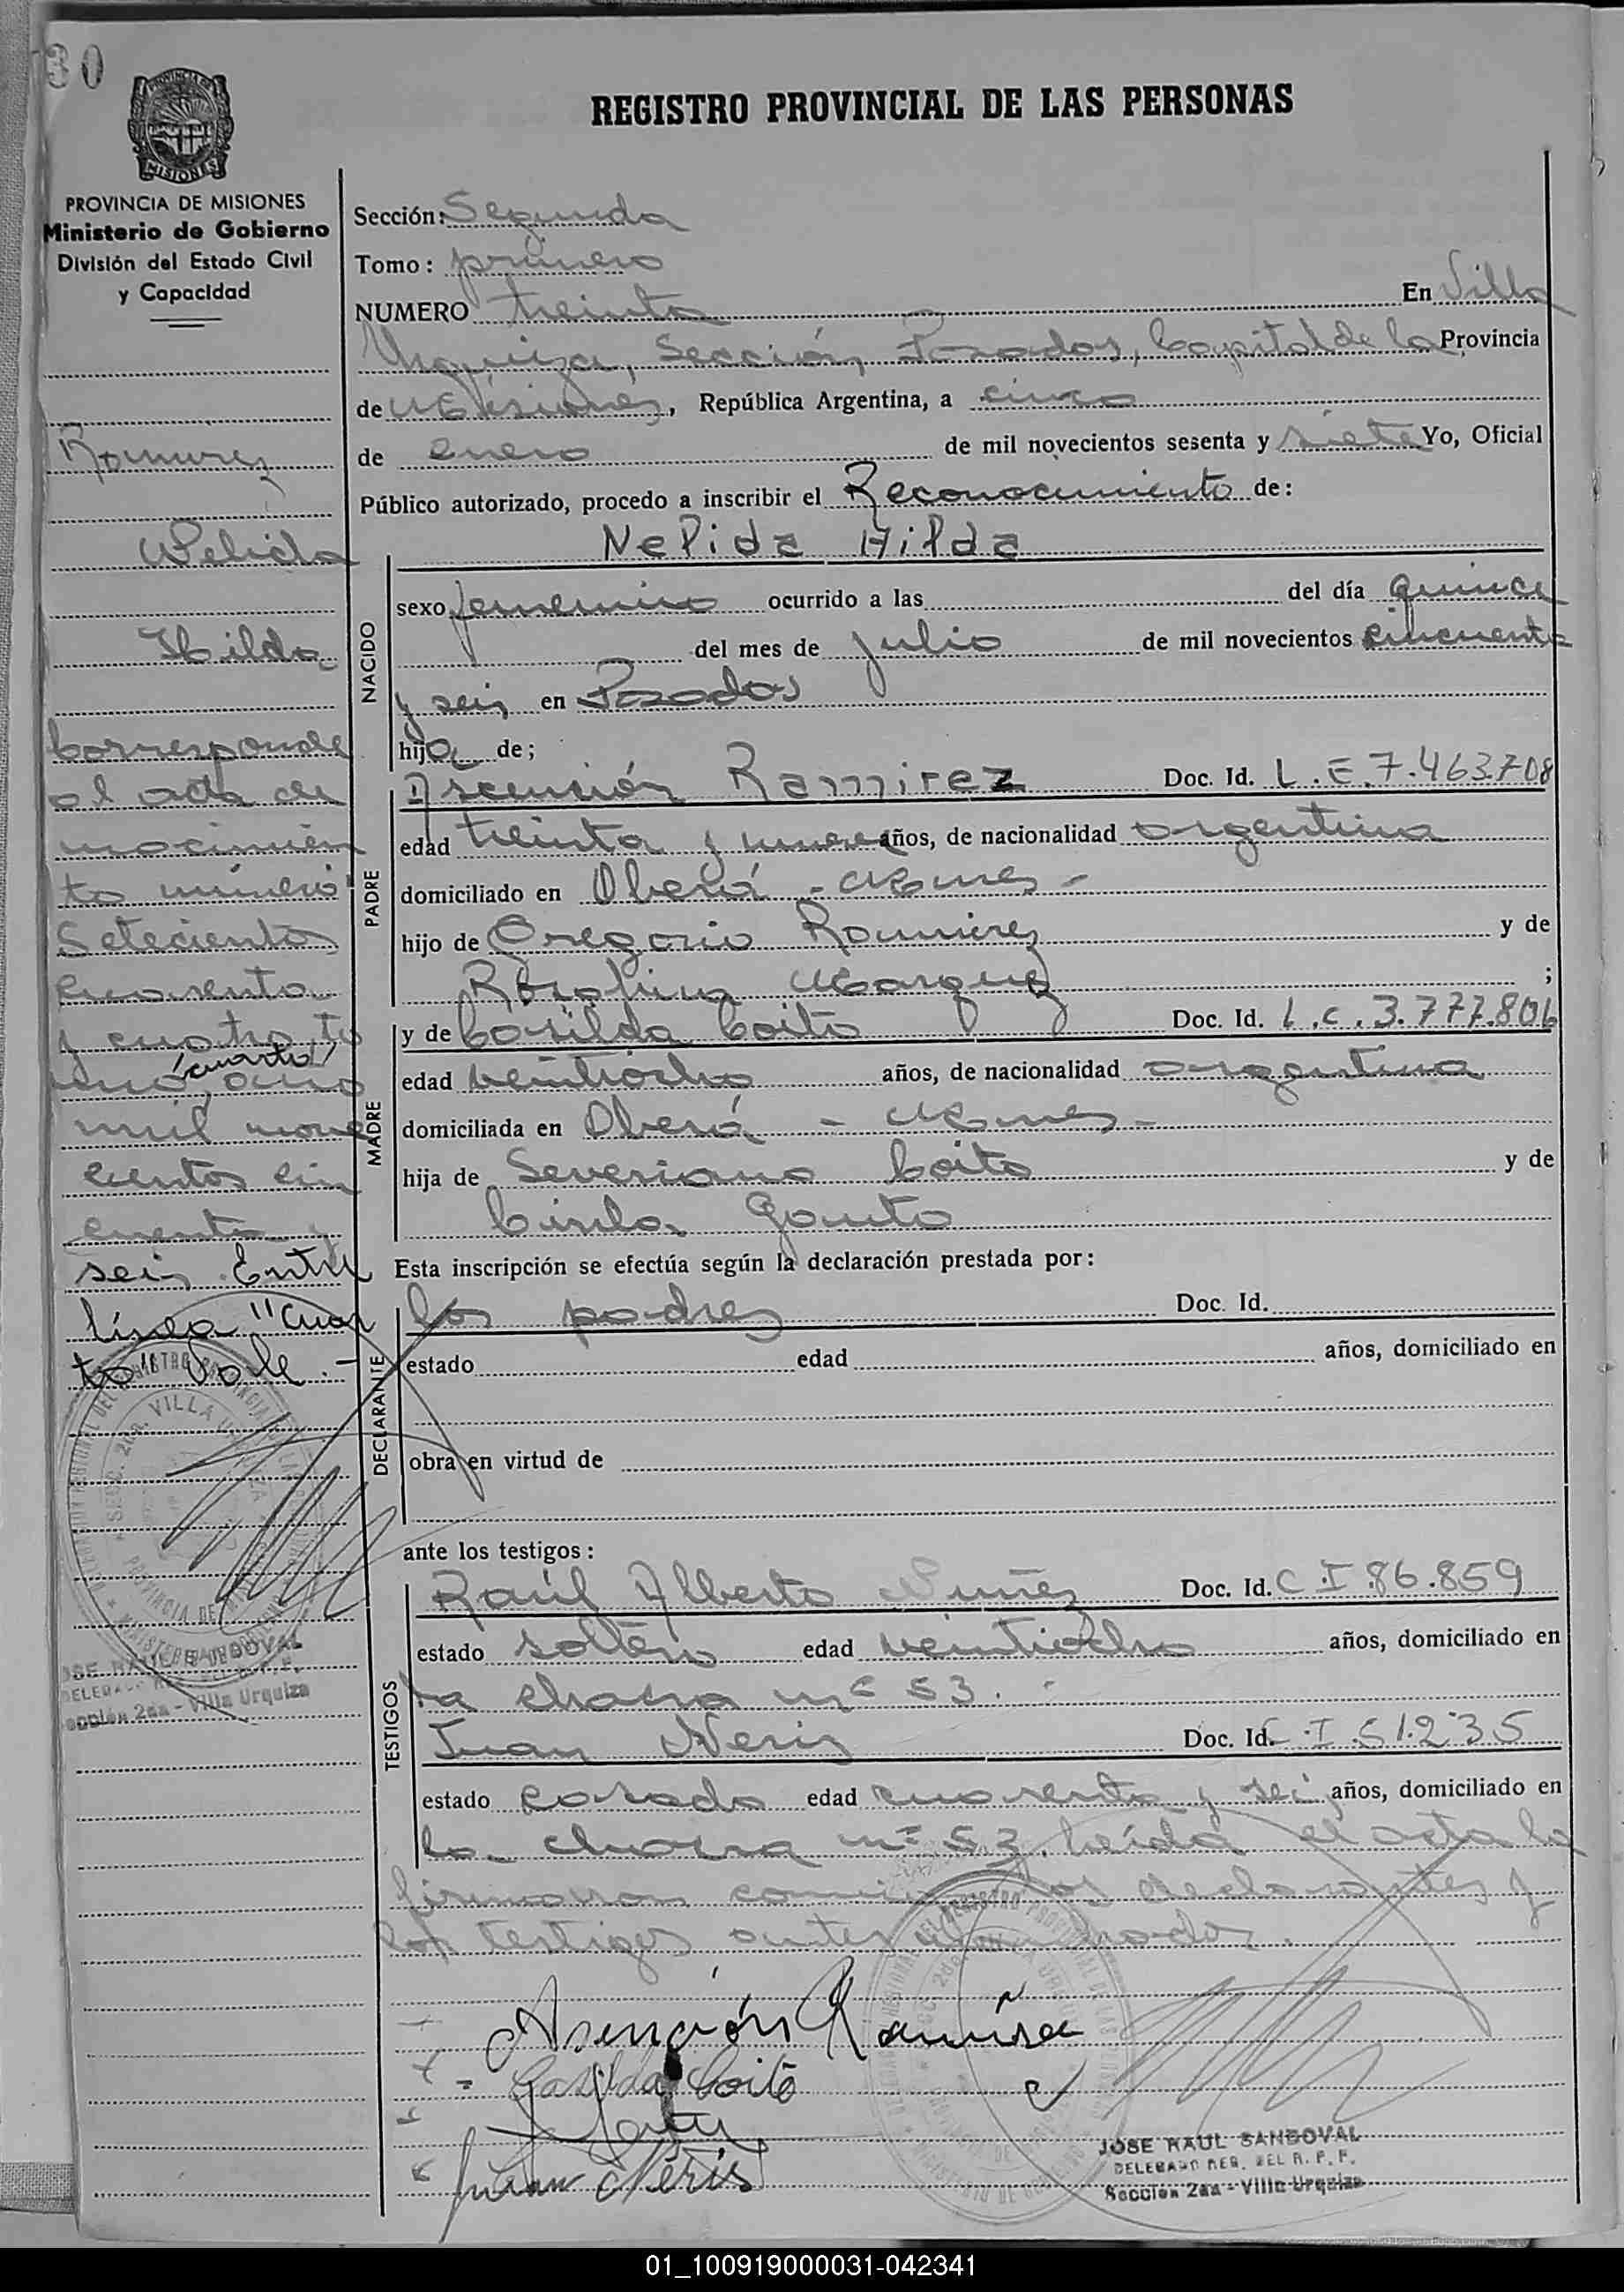 30
REGISTRO PROVINCIAL DE LAS PERSONAS
PROVINCIA DE MISIONES
Ministerio de Gobierno
División del Estado Civil
y Capacidad
Ramirez
Nelida
Hilda
Corresponde
al acta de
nacimien
to número
Setecientos
cuarenta
y cuatro, to
mo, año
"cuarto"
mil nove
cientos cin
cuenta y
seis. Entre
línea "Cuar
to" Vale.-
JOSE RAUL SANDOVAL
DELEGADO REG. DEL R. P. P.
Sección 2da - Villa Urquiza
Sección: Segunda
Tomo: primero
NUMERO treinta En Villa
Urquiza, Sección Posadas, Capital de la Provincia
de Misiones, República Argentina, a cinco
de enero de mil novecientos sesenta y siete Yo, Oficial
Público autorizado, procedo a inscribir el Reconocimiento de:
Nelida Hilda
NACIDO
sexo femenino ocurrido a las del día quince
del mes de julio de mil novecientos cincuenta
y seis en Posadas
hija de;
PADRE
Ascensión Ramirez Doc. Id. L.E. 7.463.708
edad treinta y nueve años, de nacionalidad argentina
domiciliado en Oberá - Mnes -
hijo de Gregorio Ramirez y de
Marquez ;
MADRE
y de Casilda Coito Doc. Id. L.C. 3.777.806
edad veintiocho años, de nacionalidad argentina
domiciliada en Oberá - Mnes -
hija de Severiano Coito y de
Gouto
Esta inscripción se efectúa según la declaración prestada por:
DECLARANTE
los padres Doc. Id.
estado edad años, domiciliado en
obra en virtud de
ante los testigos:
TESTIGOS
Raúl Alberto Nuñez Doc. Id. C.I. 86.859
estado soltero edad veintiocho años, domiciliado en
la chacra nº 53.
Juan Neris Doc. Id. C.I. 51.235
estado casado edad cuarenta y seis años, domiciliado en
la chacra nº 53. Leída el acta la
firmaron conmigo los declarantes y
los testigos antes nombrados.
Asención Ramírez
Casilda Coito
Juan Neris
JOSE RAUL SANDOVAL
DELEGADO REG. DEL R. P. P.
Sección 2da - Villa Urquiza
01_100919000031-042341